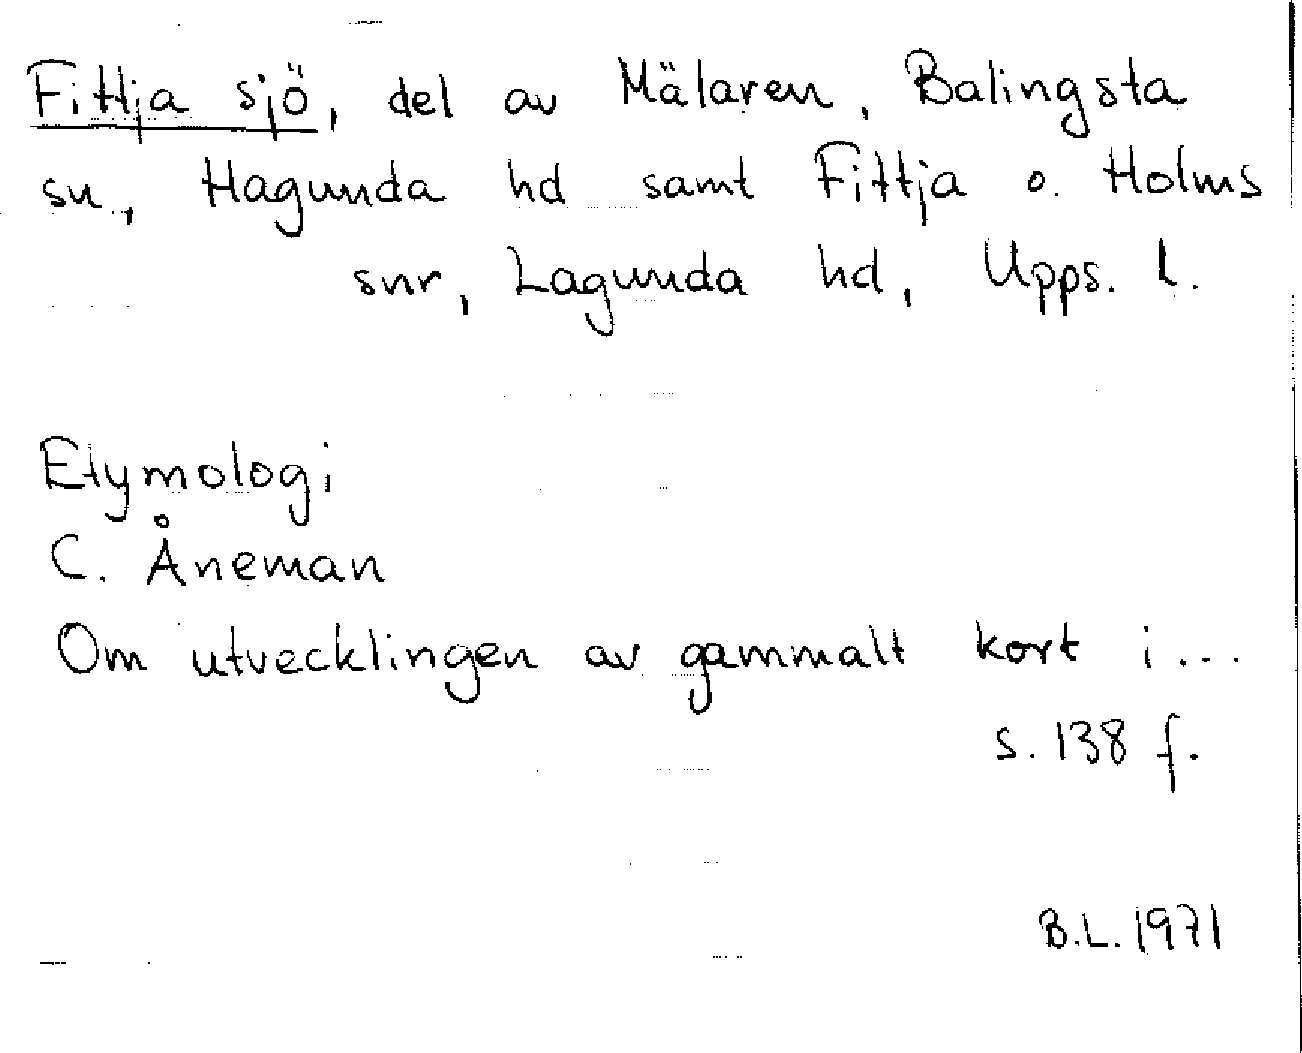 Fittja sjö, del av Mälaren, Balingsta
sn., Hagunda hd samt Fittja o. Holms
snr, Lagunda hd, Upps. l.
Etymologi
C. Åneman
Om utvecklingen av gammalt kort i...
s. 138 f.
B.L. 1971